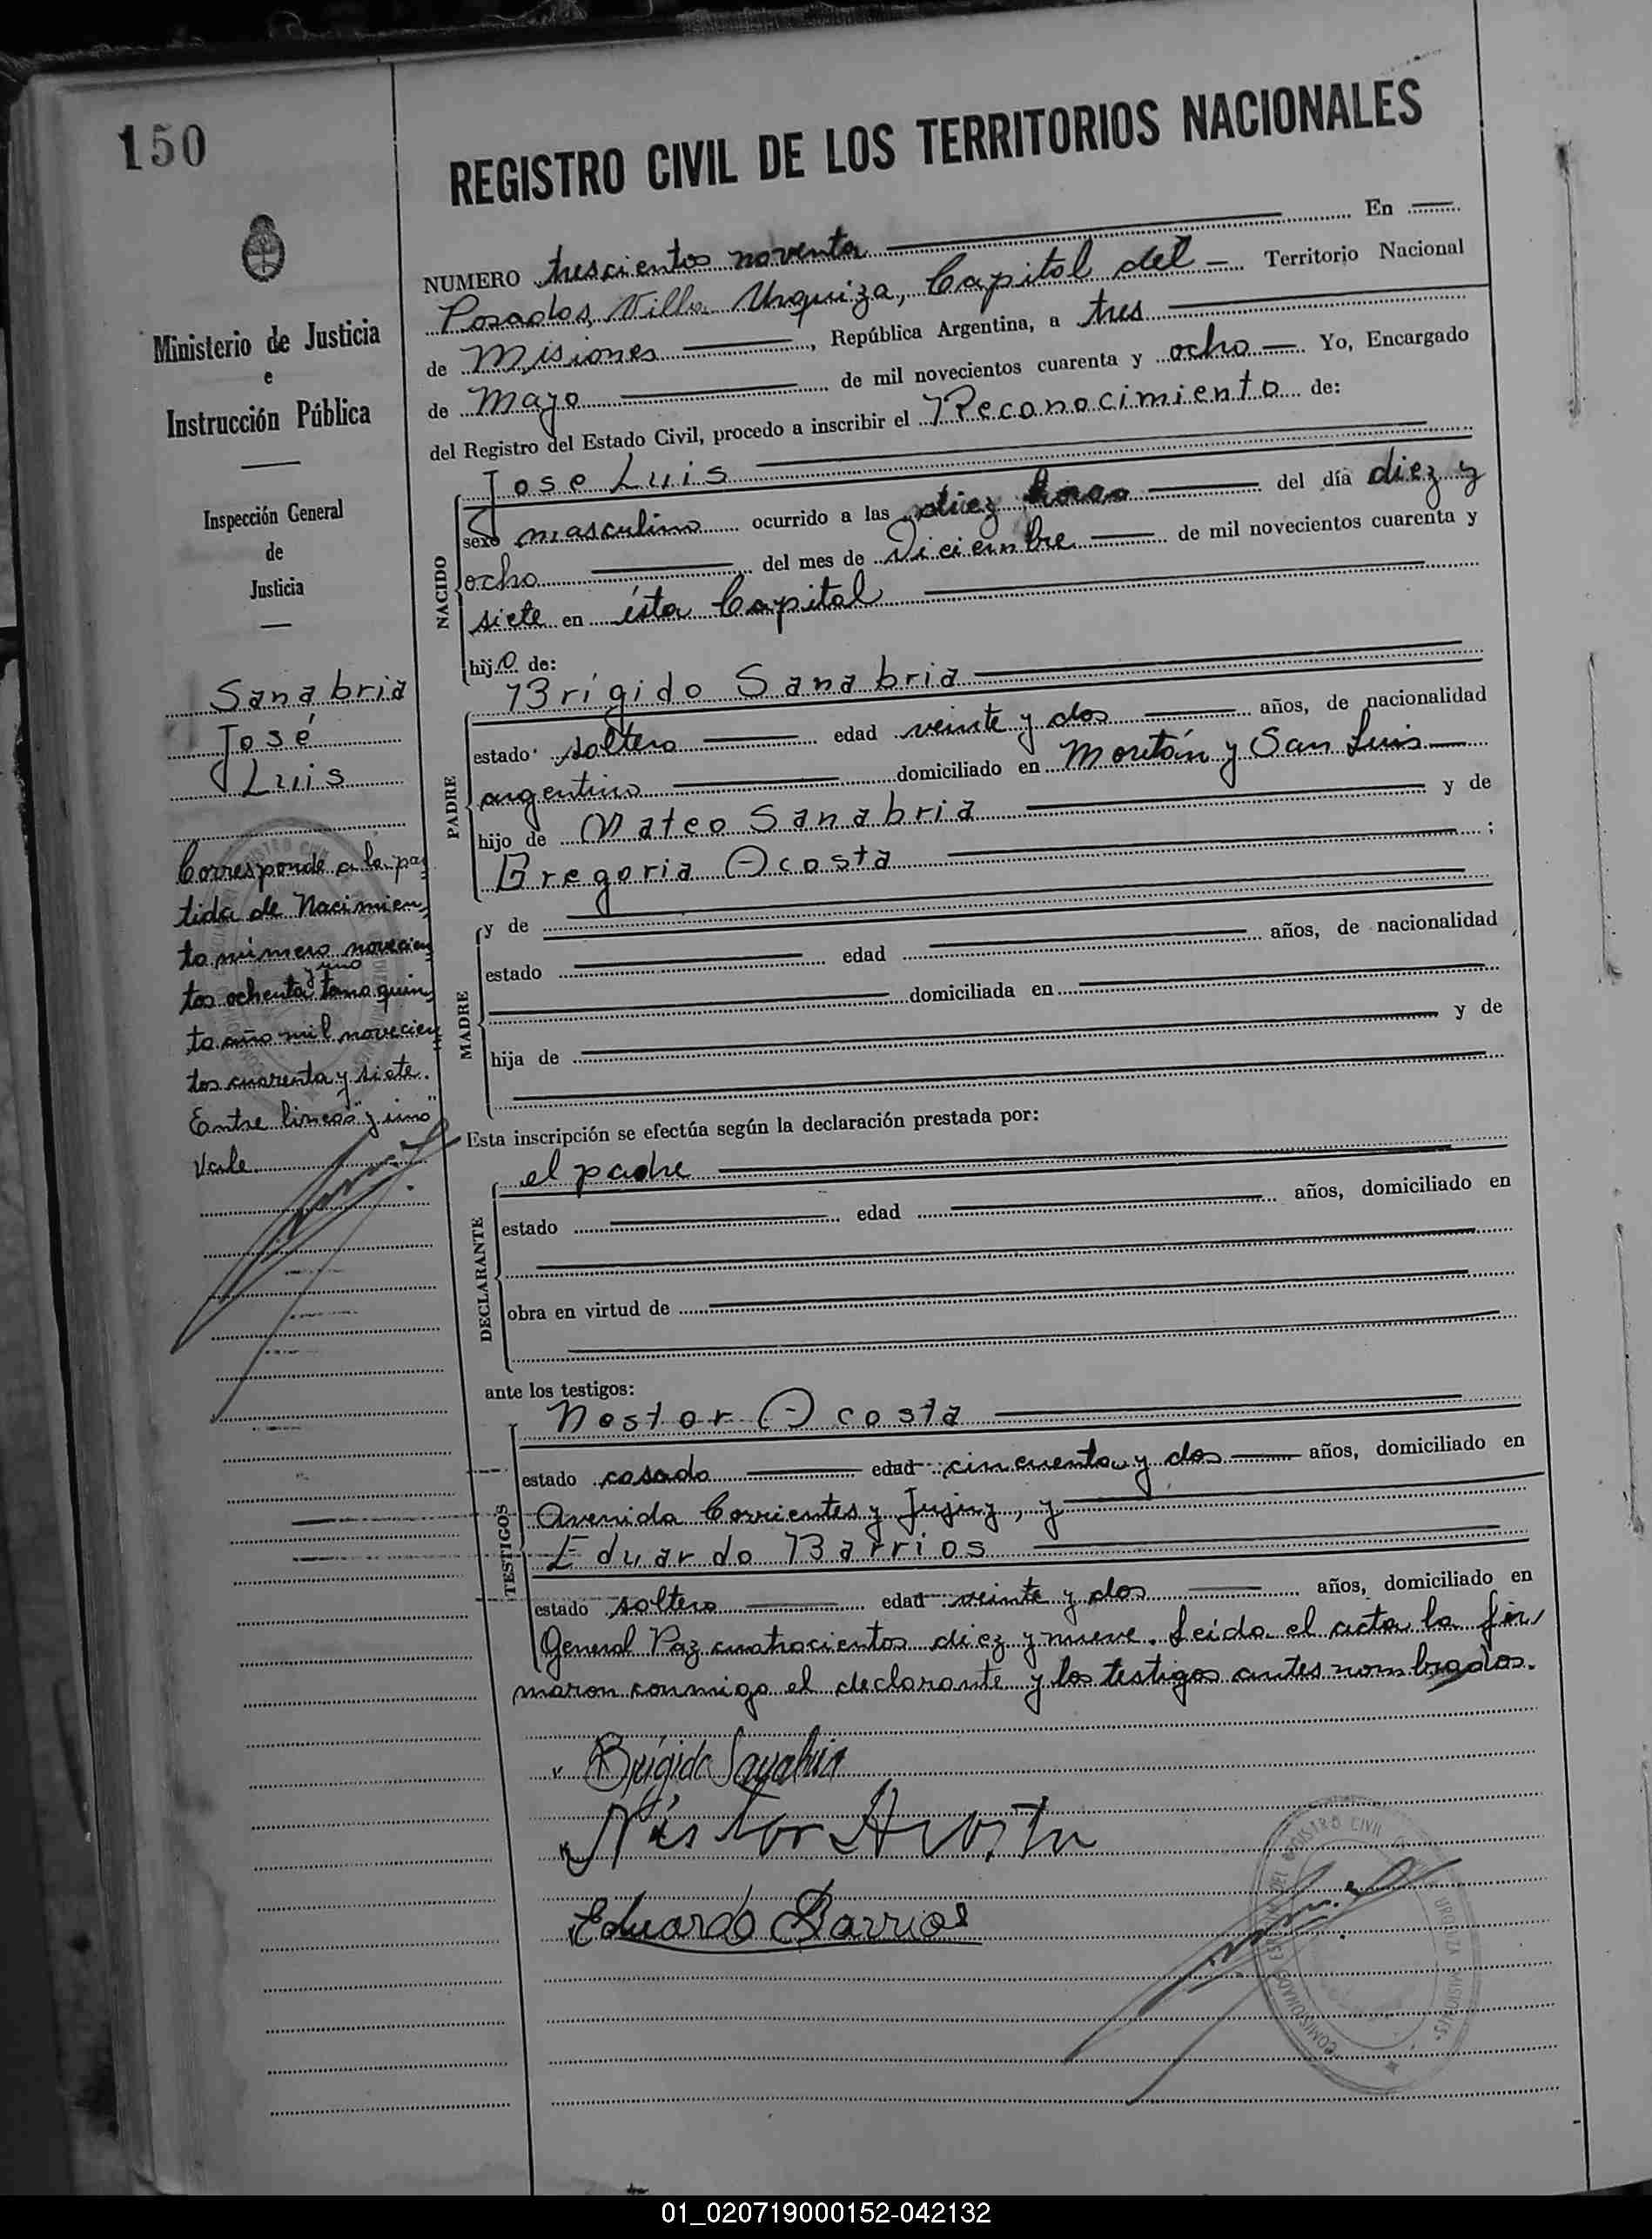 150
REGISTRO CIVIL DE LOS TERRITORIOS NACIONALES
Ministerio de Justicia
e
Instrucción Pública
Inspección General
de
Justicia
Sanabria
José
Luis
Corresponde a la par
tida de Nacimien
to número novecien
tos ochenta y uno tomo quin
to año mil novecien
tos cuarenta y siete.
Entre lineas "y uno"
Vale
NUMERO trescientos noventa En
Posadas, Villa Urquiza, Capital del Territorio Nacional
de Misiones, República Argentina, a tres
de Mayo de mil novecientos cuarenta y ocho Yo, Encargado
del Registro del Estado Civil, procedo a inscribir el Reconocimiento de:
NACIDO
Jose Luis
sexo masculino ocurrido a las diez horas del día diez y
ocho del mes de Diciembre de mil novecientos cuarenta y
siete en ésta Capital
hijo de:
PADRE
Brígido Sanabria
estado soltero edad veinte y dos años, de nacionalidad
argentino domiciliado en Moritán y San Luis
hijo de Mateo Sanabria y de
Gregoria Acosta ;
MADRE
y de
estado edad años, de nacionalidad
domiciliada en
hija de y de
Esta inscripción se efectúa según la declaración prestada por:
DECLARANTE
el padre
estado edad años, domiciliado en
obra en virtud de
ante los testigos:
TESTIGOS
Nestor Acosta
estado casado edad cincuenta y dos años, domiciliado en
Avenida Corrientes y Jujuy, y
Eduardo Barrios
estado soltero edad veinte y dos años, domiciliado en
General Paz cuatrocientos diez y nueve. Leida el acta la fir
maron conmigo el declarante y los testigos antes nombrados.
Brígido Sanabria
Néstor Acosta
Eduardo Barrios
01_020719000152-042132